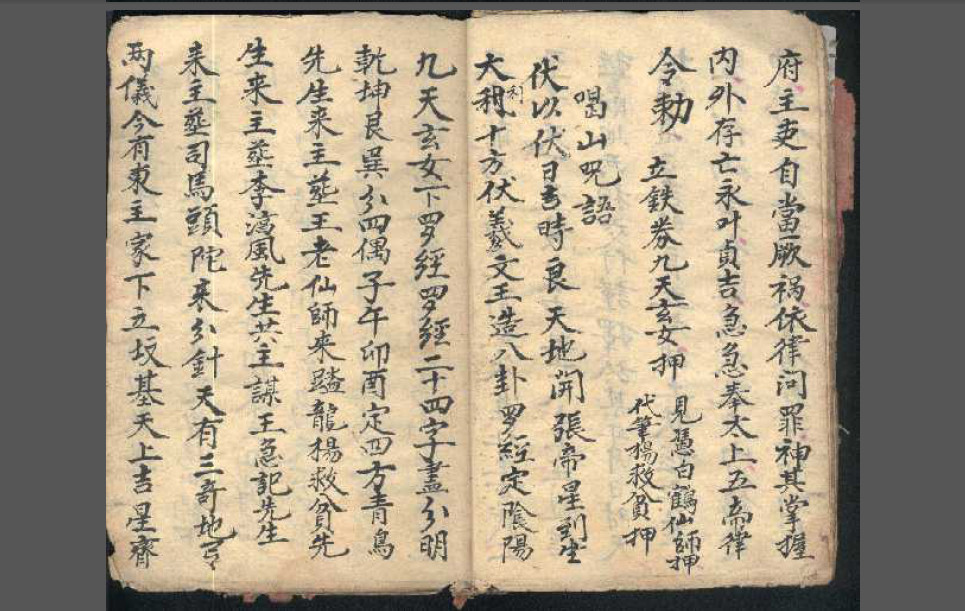 府主吏自當厥禍依律问罪神其掌握
内外存亡永叶貞吉急急奉太上五帝律
令勅
立鉄券九天玄女押
見憑白鶴仙師押
代筆楊救貧押
喝山呪語
伏以伏日吉時良天地開張帝星到坐
大利十方伏羲文王造八卦罗經定陰陽
九天玄女下罗經罗經二十四字盡分明
乾坤艮巽分四偶子午卯酉定四方青鳥
先生来主塟王老仙師来踏龍楊救貧先
生来主塟李淳風先生共主謀王急記先生
来主塟司馬頭陀来分針天有三奇地有
两儀今有東主家下立坟基天上吉星齊